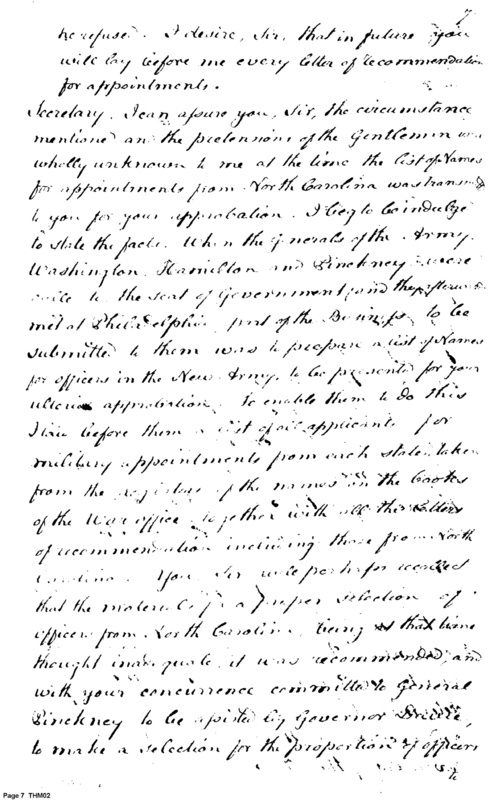 7
he refused. I desire, Sir, that in future you
will lay before me every letter of recommendation
for appointments.
Secretary. I can assure you, Sir, the circumstance
mentioned and the pretensions of the Gentlemen was
wholly unknown to me at the time the list of Names
for appointments from North Carolina was transmd
to you for your approbation. I beg to be indulged
to state the facts. When the generals of the Army,
Washington, Hamilton and Pinckney were
called to the seat of Government, and they
met at Philadelphia, part of the Business to be
submitted to them was to prepare a list of Names
for officers in the New Army, to be presented for your
ulterior approbation. To enable them to do this
I laid before them a list of all applicants for
military appointments from each state, taken
from the registers of the names in the books
of the War office, together with all the Letters
of recommendation including those from North
Carolina. You Sir will perhaps recollect
that the materials for a proper selection of
officers from North Carolina, being at that time
thought inadequate, it was recommended, and
with your concurrence committed to General
Pinckney to be assisted by Governor Davie,
to make a selection for the proportion of officers